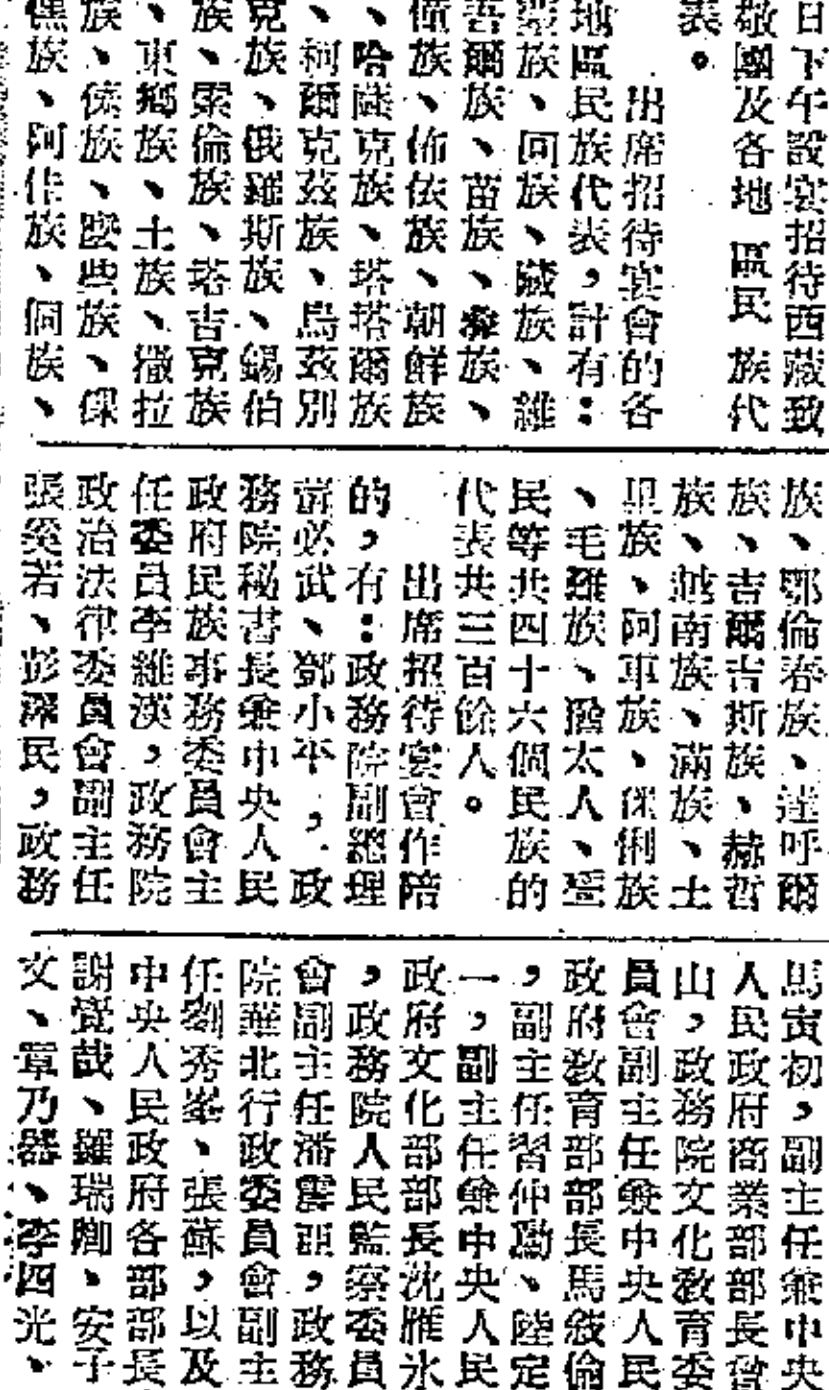 日下午設宴招待西藏致
敬團及各地區民族代
表。
出席招待宴會的各
地區民族代表,計有:
蒙族、回族、藏族、維
吾爾族、苗族、彝族、
僮族、佈依族、朝鮮族
、哈薩克族、塔塔爾族
、柯爾克茲族、烏茲別
克族、俄羅斯族、錫伯
族、索倫族、塔吉克族
、東鄉族、土族、撒拉
族、傣族、麼些族、倮
黑族、阿佧族、侗族、
族、鄂倫春族、達呼爾
族、吉爾吉斯族、赫哲
族、越南族、滿族、土
里族、阿車族、倈俐族
、毛難族、猶太人、疍
民等共四十六個民族的
代表共三百餘人。
出席招待宴會作陪
的,有:政務院副總理
董必武、鄧小平,政
務院秘書長兼中央人民
政府民族事務委員會主
任委員李維漢,政務院
政治法律委員會副主任
張奚若、彭澤民,政務
馬寅初,副主任兼中央
人民政府商業部部長曾
山,政務院文化敎育委
員會副主任兼中央人民
政府敎育部部長馬敍倫
,副主任習仲勛、陸定
一,副主任兼中央人民
政府文化部部長沈雁冰
,政務院人民監察委員
會副主任潘震亞,政務
院華北行政委員會副主
任劉秀峯、張蘇,以及
中央人民政府各部部長
謝覺哉、羅瑞卿、安子
文、章乃器、李四光、